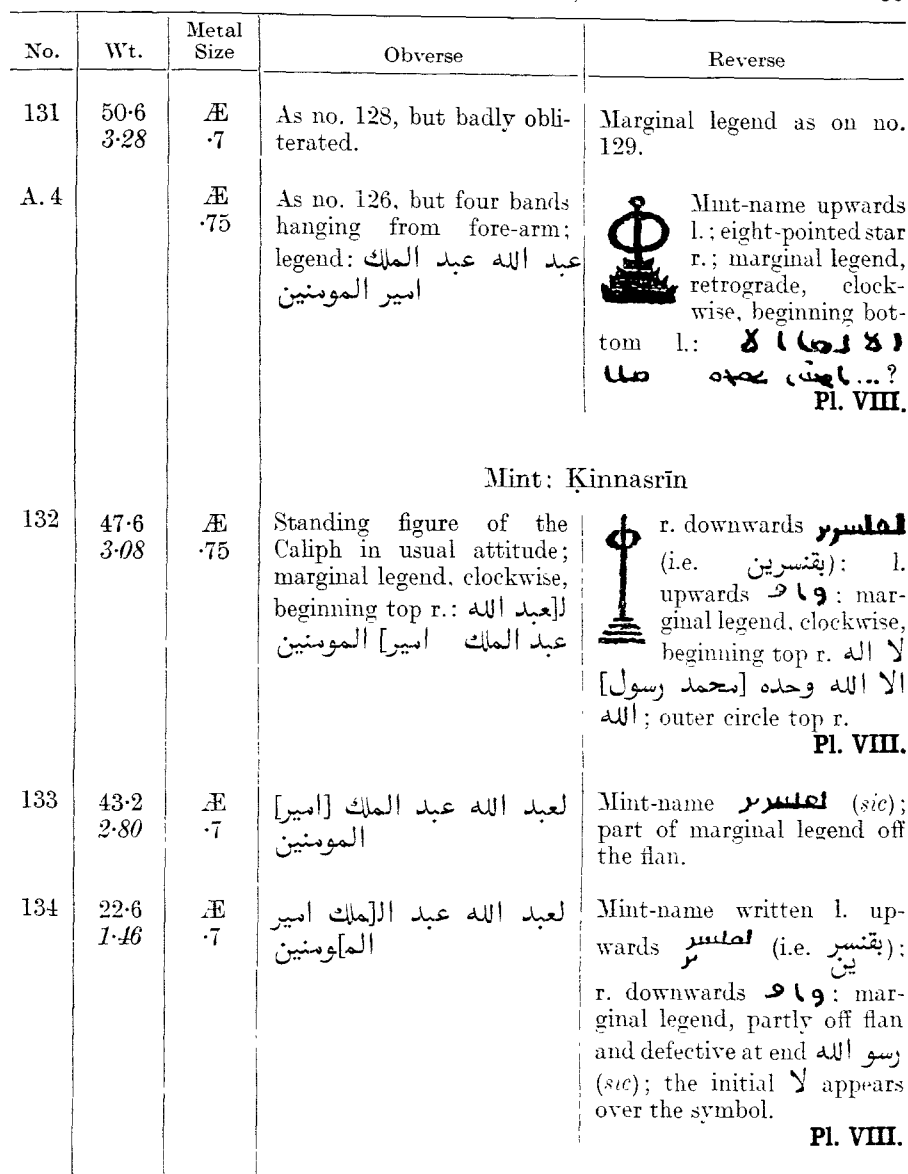 No. Wt. Metal Size Obverse Reverse
131 50·6 Æ As no. 128, but badly obli-
3·28 ·7 terated.
Marginal legend as on no.
129.
A. 4 Æ As no. 126, but four bands
·75 hanging from fore-arm;
legend: عبد الله عبد الملك
امير المومنين
Mint-name upwards
l.; eight-pointed star
r.; marginal legend,
retrograde, clock-
wise, beginning bot-
tom l.:
...?
Pl. VIII.
Mint: Ḳinnasrīn
132 47·6 Æ Standing figure of the
3·08 ·75 Caliph in usual attitude;
marginal legend, clockwise,
beginning top r.: لـ[عبد الله
عبد الملك امير] المومنين
r. downwards
(i.e. بقنسرين): l.
upwards : mar-
ginal legend, clockwise,
beginning top r. لا اله
الا الله وحده [محمد رسول]
الله; outer circle top r.
Pl. VIII.
133 43·2 Æ لعبد الله عبد الملك [امير]
2·80 ·7 المومنين
Mint-name (sic);
part of marginal legend off
the flan.
134 22·6 Æ لعبد الله عبد الـ[ملك امير
1·46 ·7 المـ]ومنين
Mint-name written l. up-
wards (i.e. بقنسر
ين);
r. downwards : mar-
ginal legend, partly off flan
and defective at end رسو الله
(sic); the initial لا appears
over the symbol.
Pl. VIII.